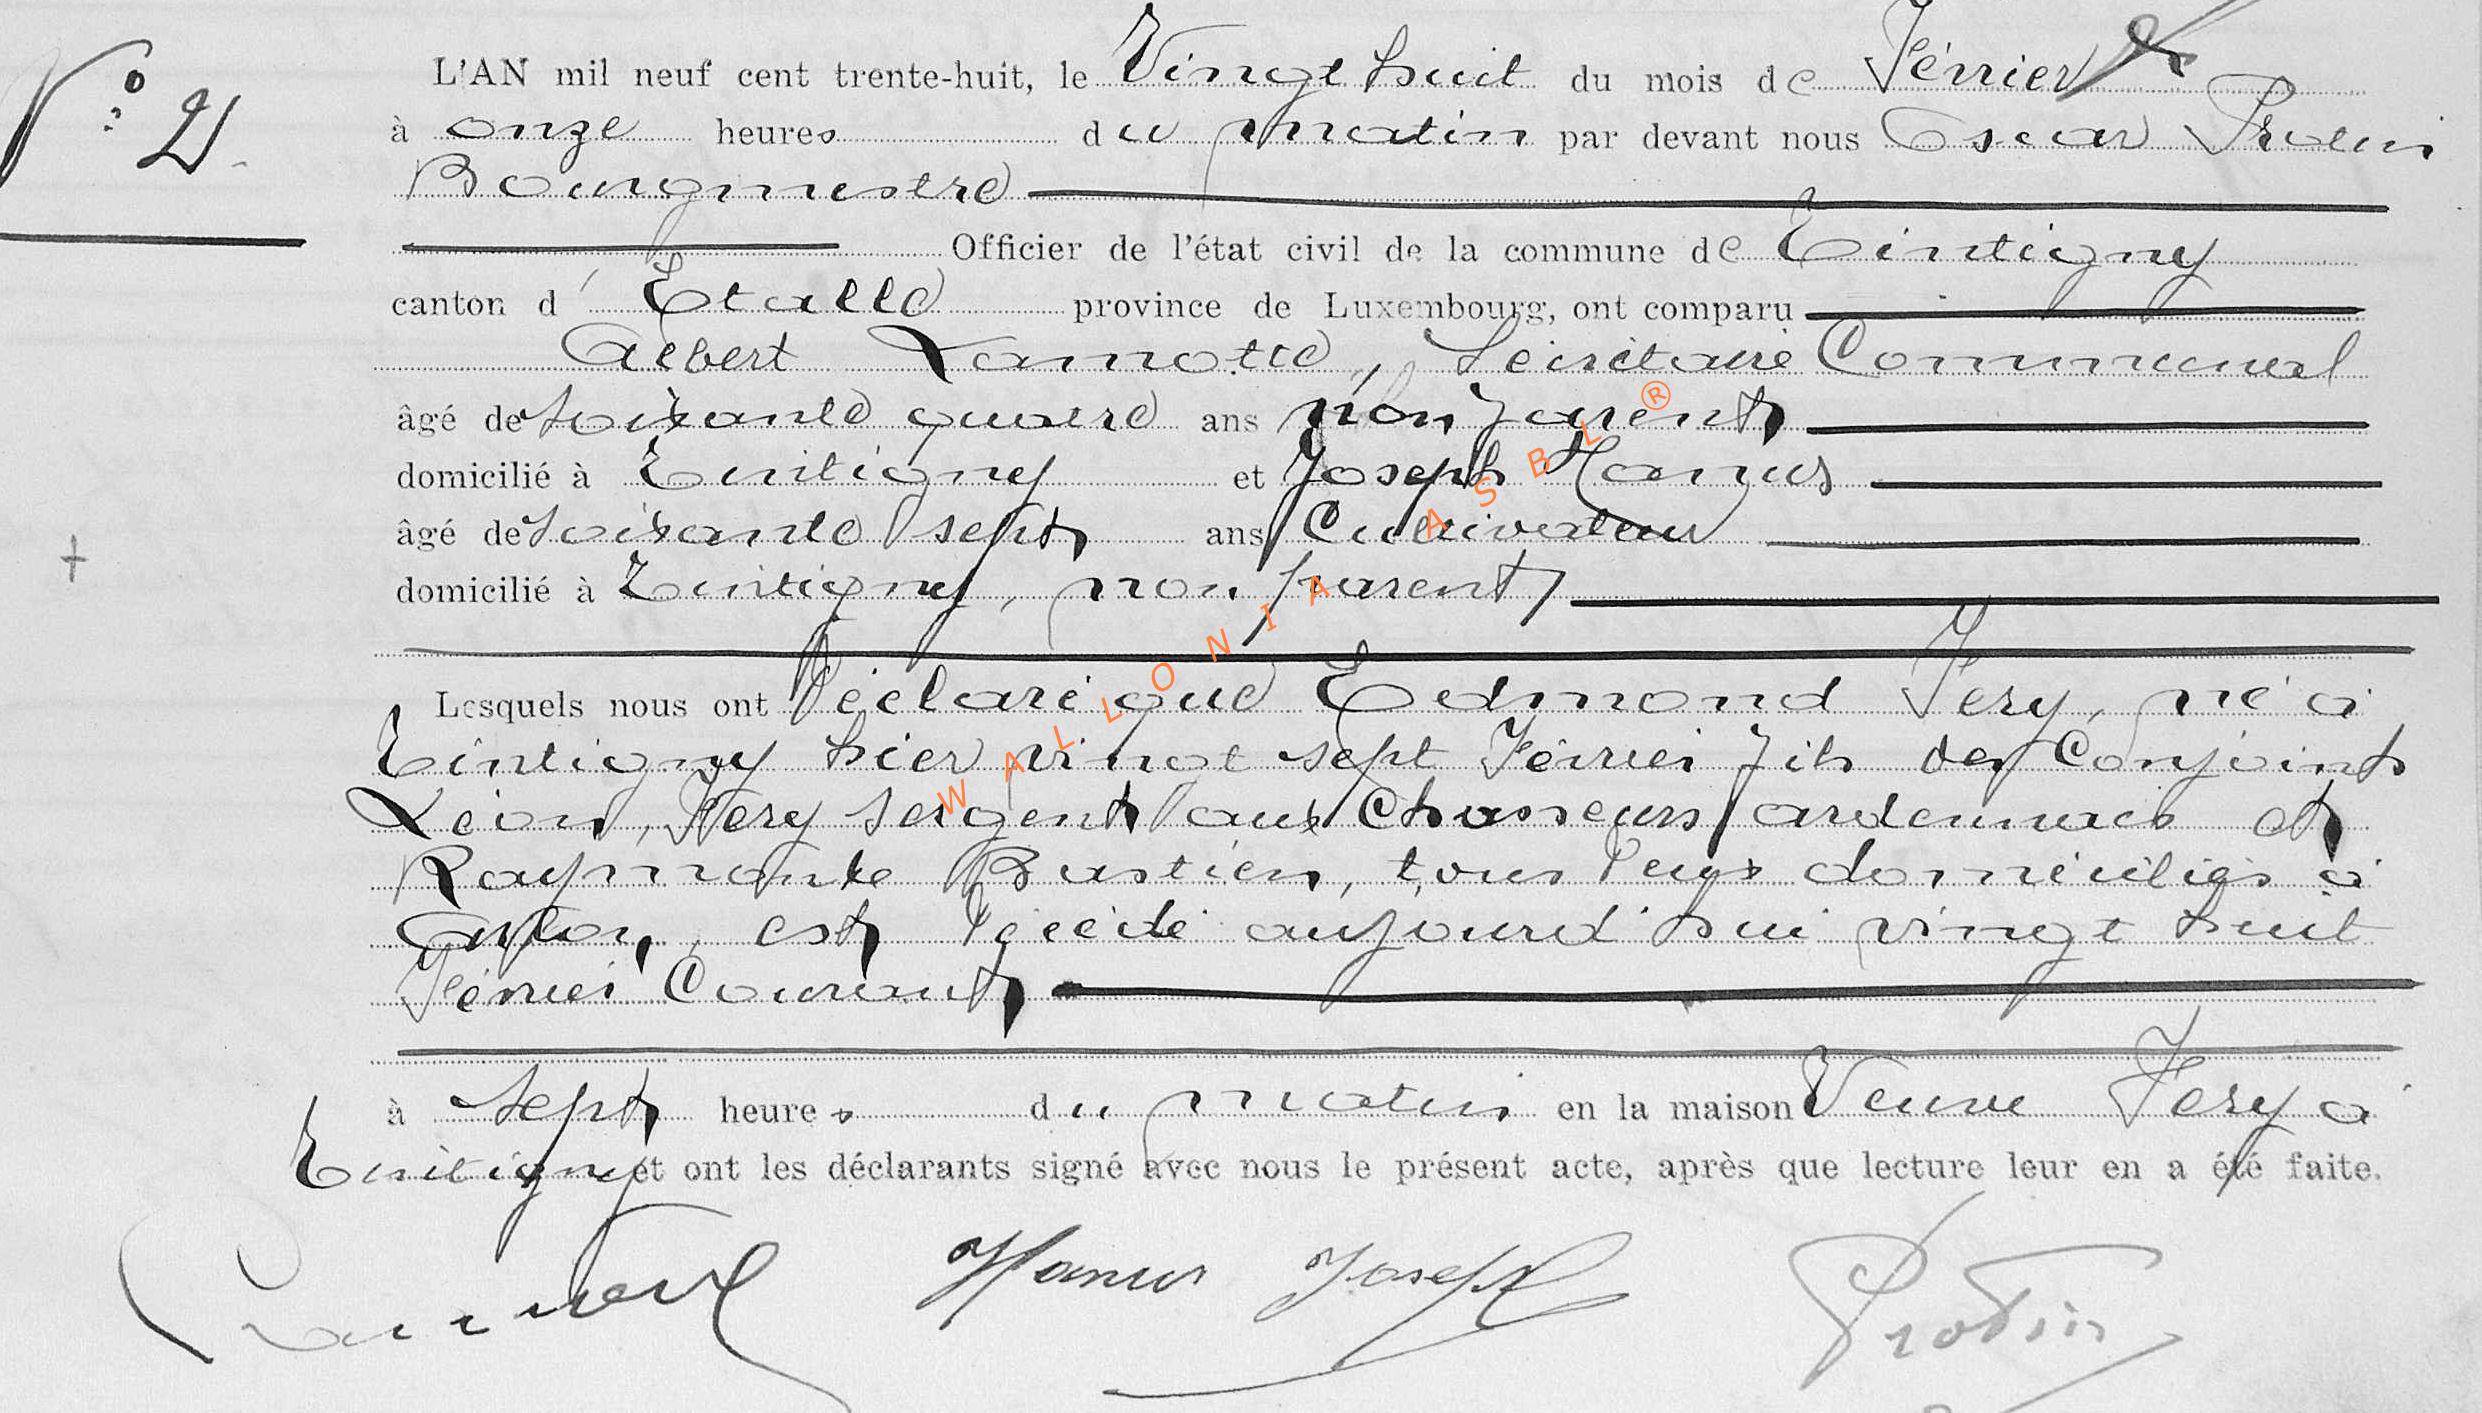 N° 2.
L'AN mil neuf cent trente-huit, le Vingt huit du mois de Février
à onze heures du matin par devant nous Oscar
Bourgmestre
Officier de l'état civil de la commune de Tintigny
canton d'Etalle province de Luxembourg, ont comparu
Albert Lamotte, Secrétaire Communal
âgé de soixante quatre ans non parent
domicilié à Tintigny et Joseph Hanus
âgé de soixante sept ans Cultivateur
domicilié à Tintigny, non parent
Lesquels nous ont Déclaré que Edmond Fery, né à
Tintigny hier vingt sept Février fils des Conjoints
Léon Fery sergent aux Chasseurs ardennais et
Raymonde Bastien, tous deux domiciliés à
Arlon, est décédé aujourd'hui vingt huit
Février Courant
à sept heures du matin en la maison Veuve Fery à
Tintigny et ont les déclarants signé avec nous le présent acte, après que lecture leur en a été faite.
Hanus Joseph
WALLONIA ASBL ®